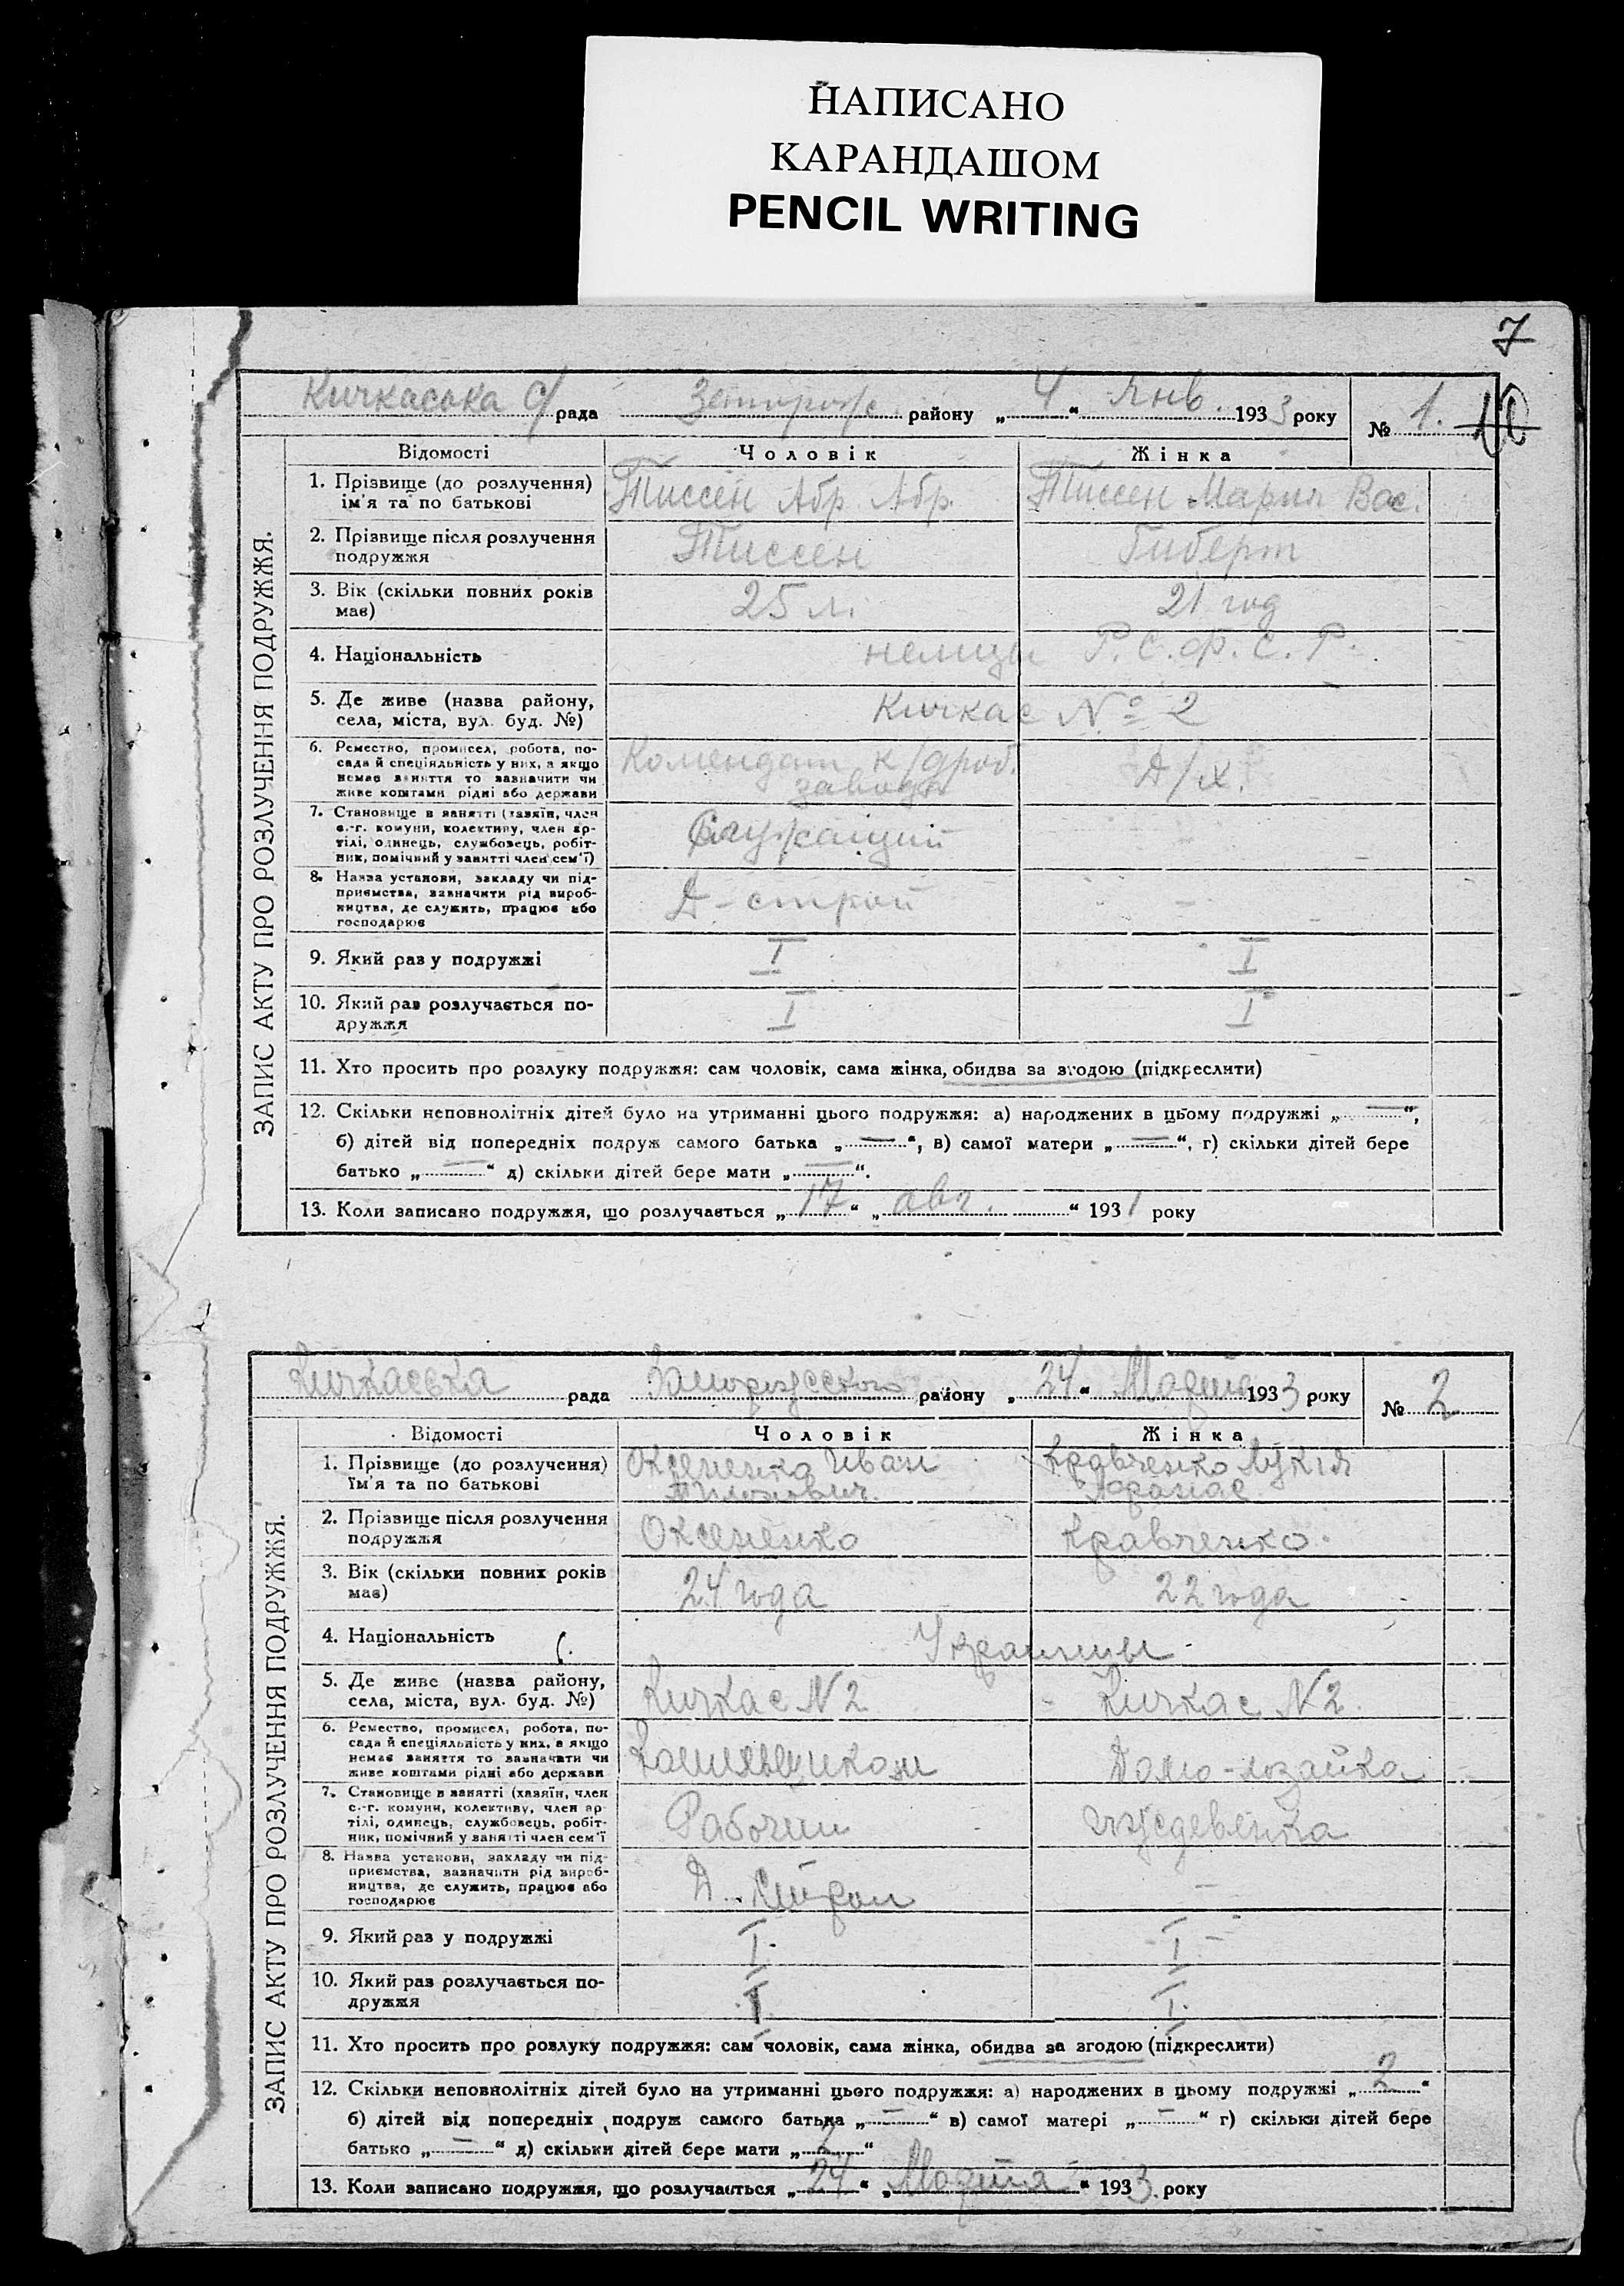 НАПИСАНО
КАРАНДАШОМ
PENCIL WRITING
7
Кичкаська С/рада Запорож/с. району „ 4 “ Янв. 1933 року № 1.
Відомості Чоловік Жінка
ЗАПИС АКТУ ПРО РОЗЛУЧЕННЯ ПОДРУЖЖЯ.
1. Прізвище (до розлучення) ім'я та по батькові Тиссен Абр. Абр. Тиссен Мария Вас.
2. Прізвище після розлучення подружжя Тиссен Гиберт
3. Вік (скільки повних років має) 25 л. 21 год
4. Національність немцы Р.С.Ф.С.Р.
5. Де живе (назва району, села, міста, вул. буд. №) Кичкас № 2
6. Ремество, промисел, робота, посада й спеціяльність у них, а якщо немає заняття то зазначити чи живе коштами рідні або держави Комендат к/дроб. завода Д/х.
7. Становище в занятті (хазяїн, член с.-г. комуни, колективу, член артілі, одинець, службовець, робітник, помічний у занятті член сем'ї) Служащий -
8. Назва установи, закладу чи підприємства, зазначити рід виробництва, де служить, працює або господарює Д-строй -
9. Який раз у подружжі I I
10. Який раз розлучається подружжя I I
11. Хто просить про розлуку подружжя: сам чоловік, сама жінка, обидва за згодою (підкреслити)
12. Скільки неповнолітніх дітей було на утриманні цього подружжя: а) народжених в цьому подружжі „ — “,
б) дітей від попередніх подруж самого батька „ — “, в) самої матери „ — “, г) скільки дітей бере
батько „ — “ д) скільки дітей бере мати „ — “.
13. Коли записано подружжя, що розлучається „ 17 “ „ авг. “ 1931 року
Кичкаська рада Запорожського району „ 24 “ Марта 1933 року № 2
Відомості Чоловік Жінка
ЗАПИС АКТУ ПРО РОЗЛУЧЕННЯ ПОДРУЖЖЯ.
1. Прізвище (до розлучення) їм'я та по батькові Оксененко Иван Кравченко Лукія Афанас
2. Прізвище після розлучення подружжя Оксененко Кравченко.
3. Вік (скільки повних років має) 24 года 22 года
4. Національність Украинцы
5. Де живе (назва району, села, міста, вул. буд. №) Кичкас N 2 Кичкас N 2.
6. Ремество, промисел, робота, посада й спеціяльність у них, а якщо немає заняття то зазначати чи живе коштами рідні або держави Домо-хозайка
7. Становище в занятті (хазяїн, член с.-г. комуни, колективу, член артілі, одинець, службовець, робітник, помічний у занятті член сем'ї Рабочий иждевенка
8. Назва установи, закладу чи підприємства, зазначити рід виробництва, де служить, працює або господарює Д. строи -
9. Який раз у подружжі I. I
10. Який раз розлучається подружжя I I.
11. Хто просить про розлуку подружжя: сам чоловік, сама жінка, обидва за згодою (підкреслити)
12. Скільки неповнолітніх дітей було на утриманні цього подружжя: а) народжених в цьому подружжі „ 2 “
б) дітей від попередніх подруж самого батька „ — “ в) самої матері „ — “ г) скільки дітей бере
батько „ — “ д) скільки дітей бере мати „ 2 “
13. Коли записано подружжя, що розлучається „ 24 “ „ Марта “ 1933. року